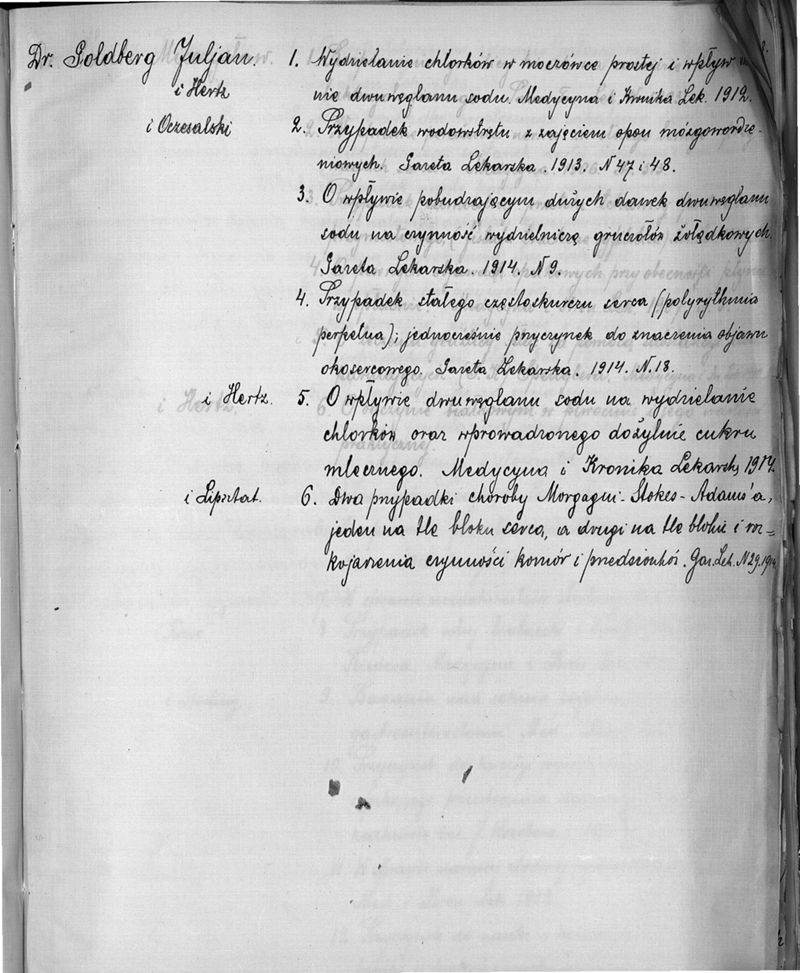 Dr. Goldberg Juljan. 1. Wydzielanie chlorków w moczówce prostej i wpływ na
i Hertz nie dwuwęglanu sodu. Medycyna i Kronika Lek. 1912.
i Oczesalski 2. Przypadek wodowstrętu z zajęciem opon mózgowordze-
niowych. Gazeta Lekarska. 1913. N 47 i 48.
3. O wpływie pobudzającym dużych dawek dwuwęglanu
sodu na czynność wydzielniczę gruczołów żołądkowych.
Gazeta Lekarska. 1914. N 9.
4. Przypadek stałego częstoskurczu serca (polyrythmia
perpetua); jednocześnie przyczynek do znaczenia objawu
okosercowego. Gazeta Lekarska. 1914. N. 18.
i Hertz. 5. O wpływie dwuwęglanu sodu na wydzielanie
chlorków oraz wprowadzonego dożylnie cukru
mlecznego. Medycyna i Kronika Lekarsk, 1914.
i Lipsztat. 6. Dwa przypadki choroby Morgagni-Stokes-Adams'a,
jeden na tle bloku serca, a drugi na tle bloku i roz=
kojarzenia czynności komór i przedsionków. Gaz. Lek. N 29. 1914